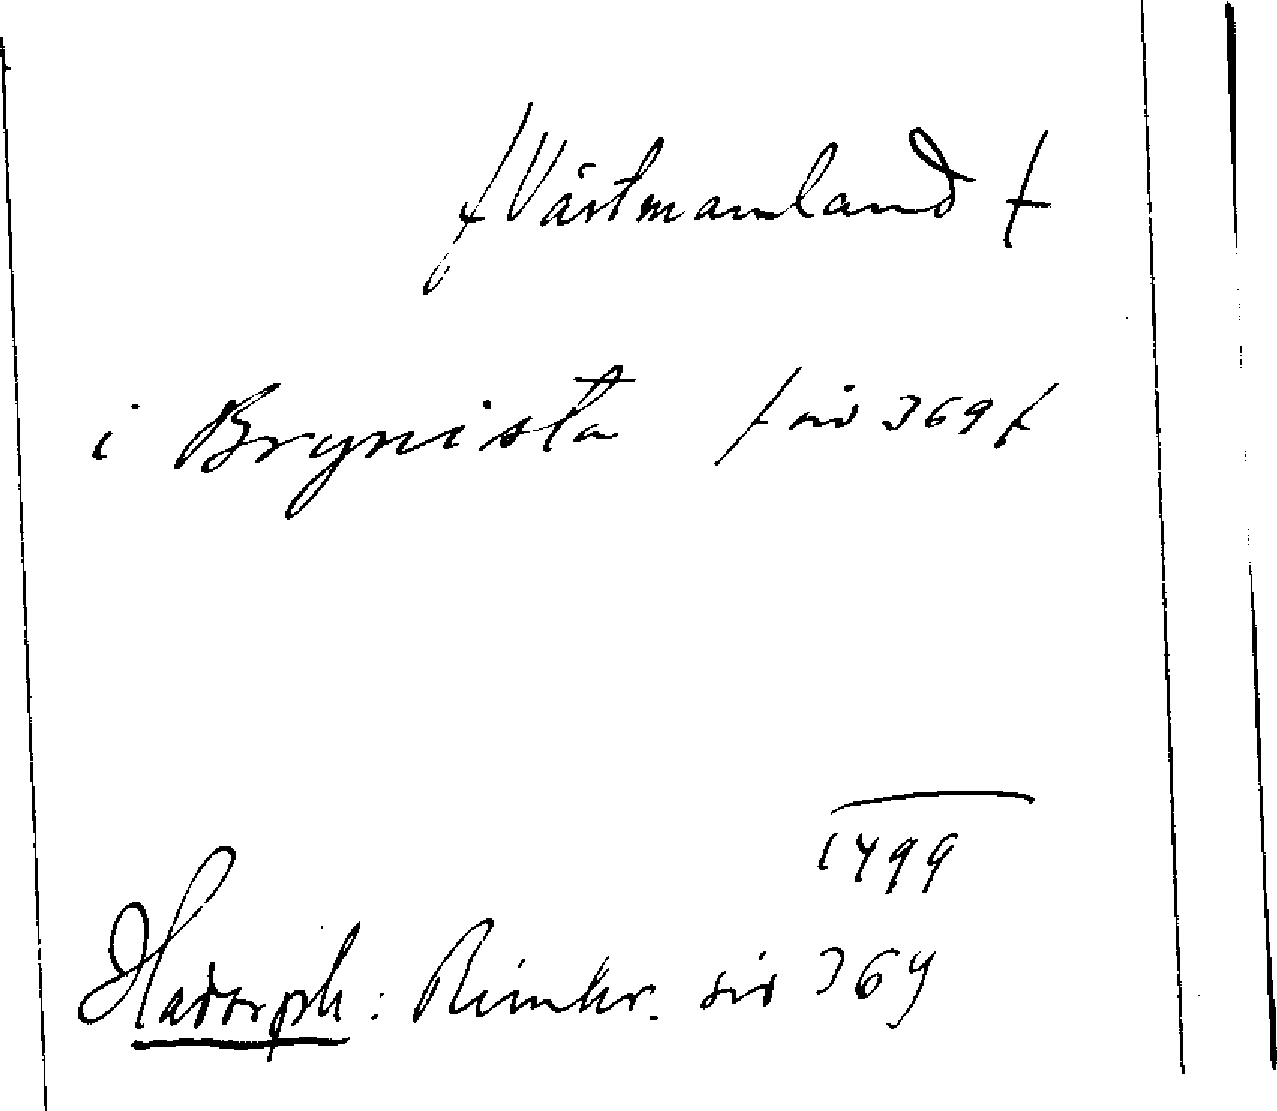 /Västmanland/
i Brynista /sid 369/
1499
Hadorph: Rimkr. sid 364